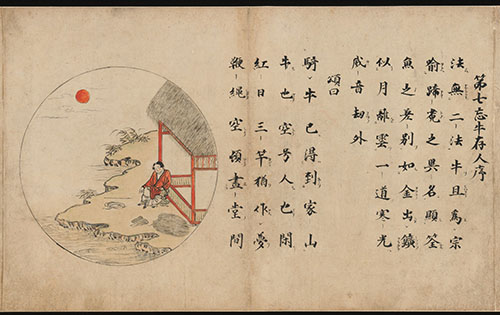 第七忘牛存人序
法無二法牛且為宗
喻蹄兎之異名顯筌
魚之差別如金出鑛
似月離雲一道寒光
威音劫外
頌曰
騎牛已得到家山
牛也空兮人也閑
紅日三竿猶作夢
鞭繩空頓堂間